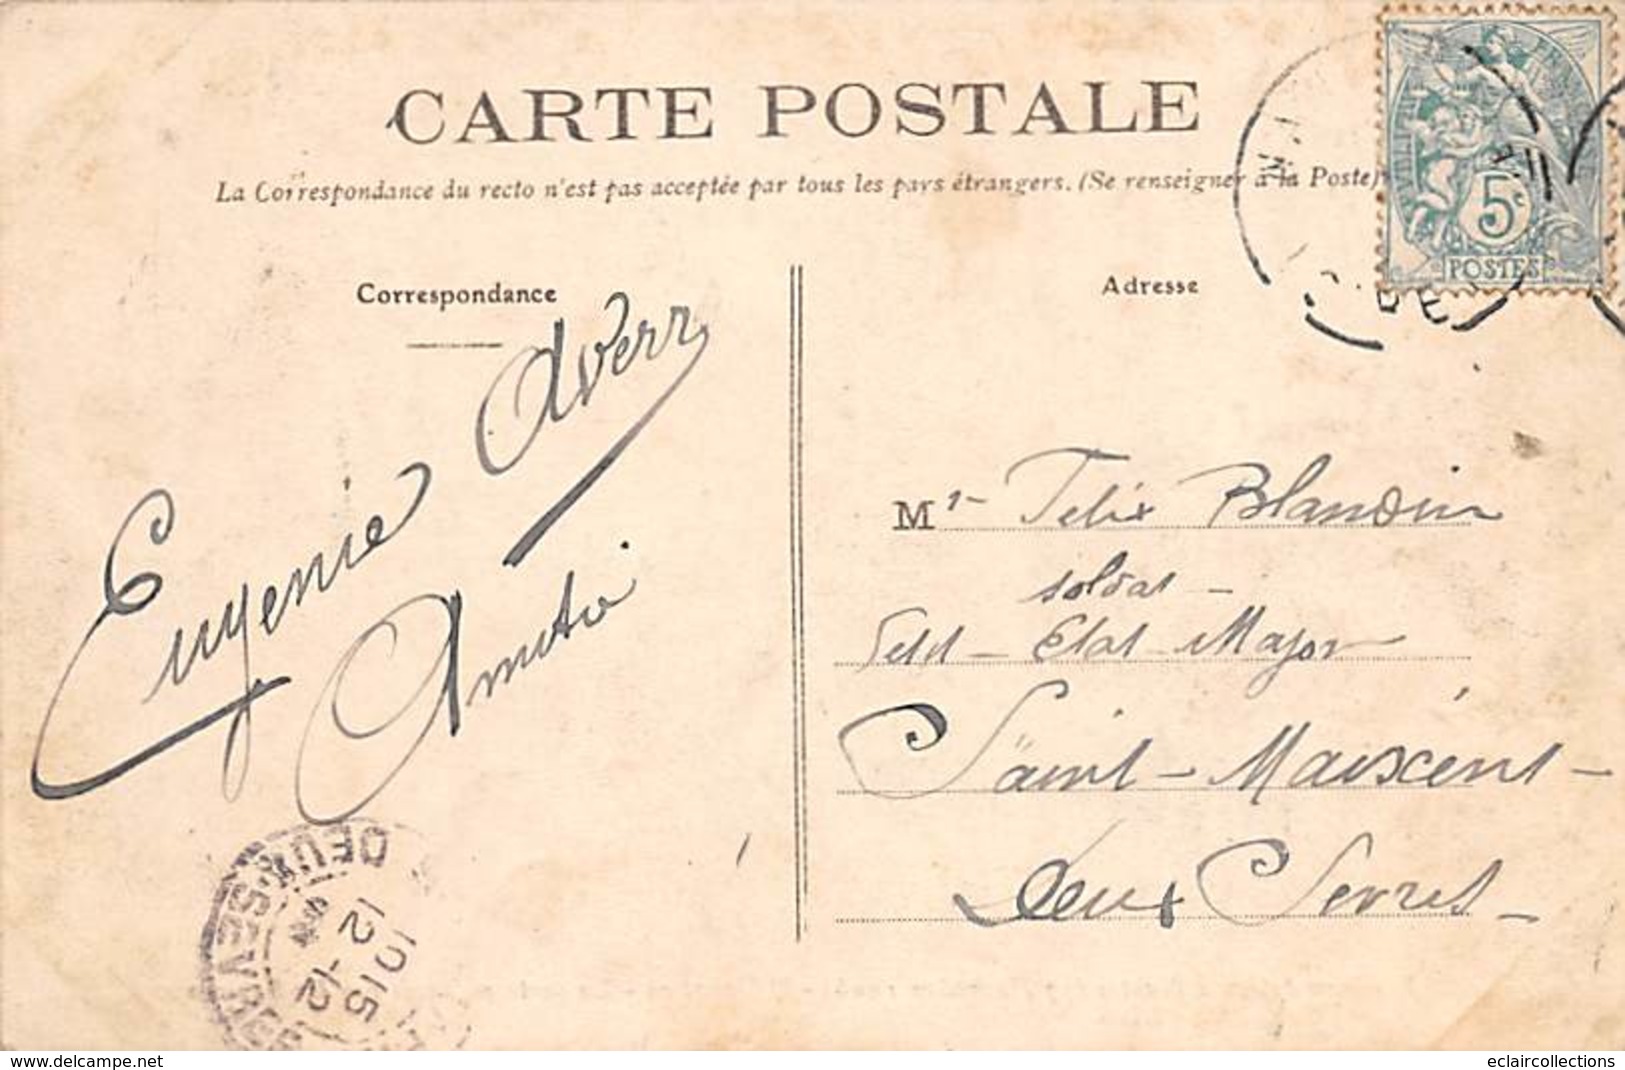 CARTE POSTALE
La Correspondance du recto n'est pas acceptée par tous les pays étrangers. (Se renseigner à la Poste)
5c
POSTES
Correspondance
Eugenie Averr
Amitié
Adresse
Mr Felix Blandin
soldat -
Petit - Etat-Major
Saint-Maixent -
Deux Sevres -
DEUX-SEVRES
1015
12 -12
www.delcampe.net
eclaircollections